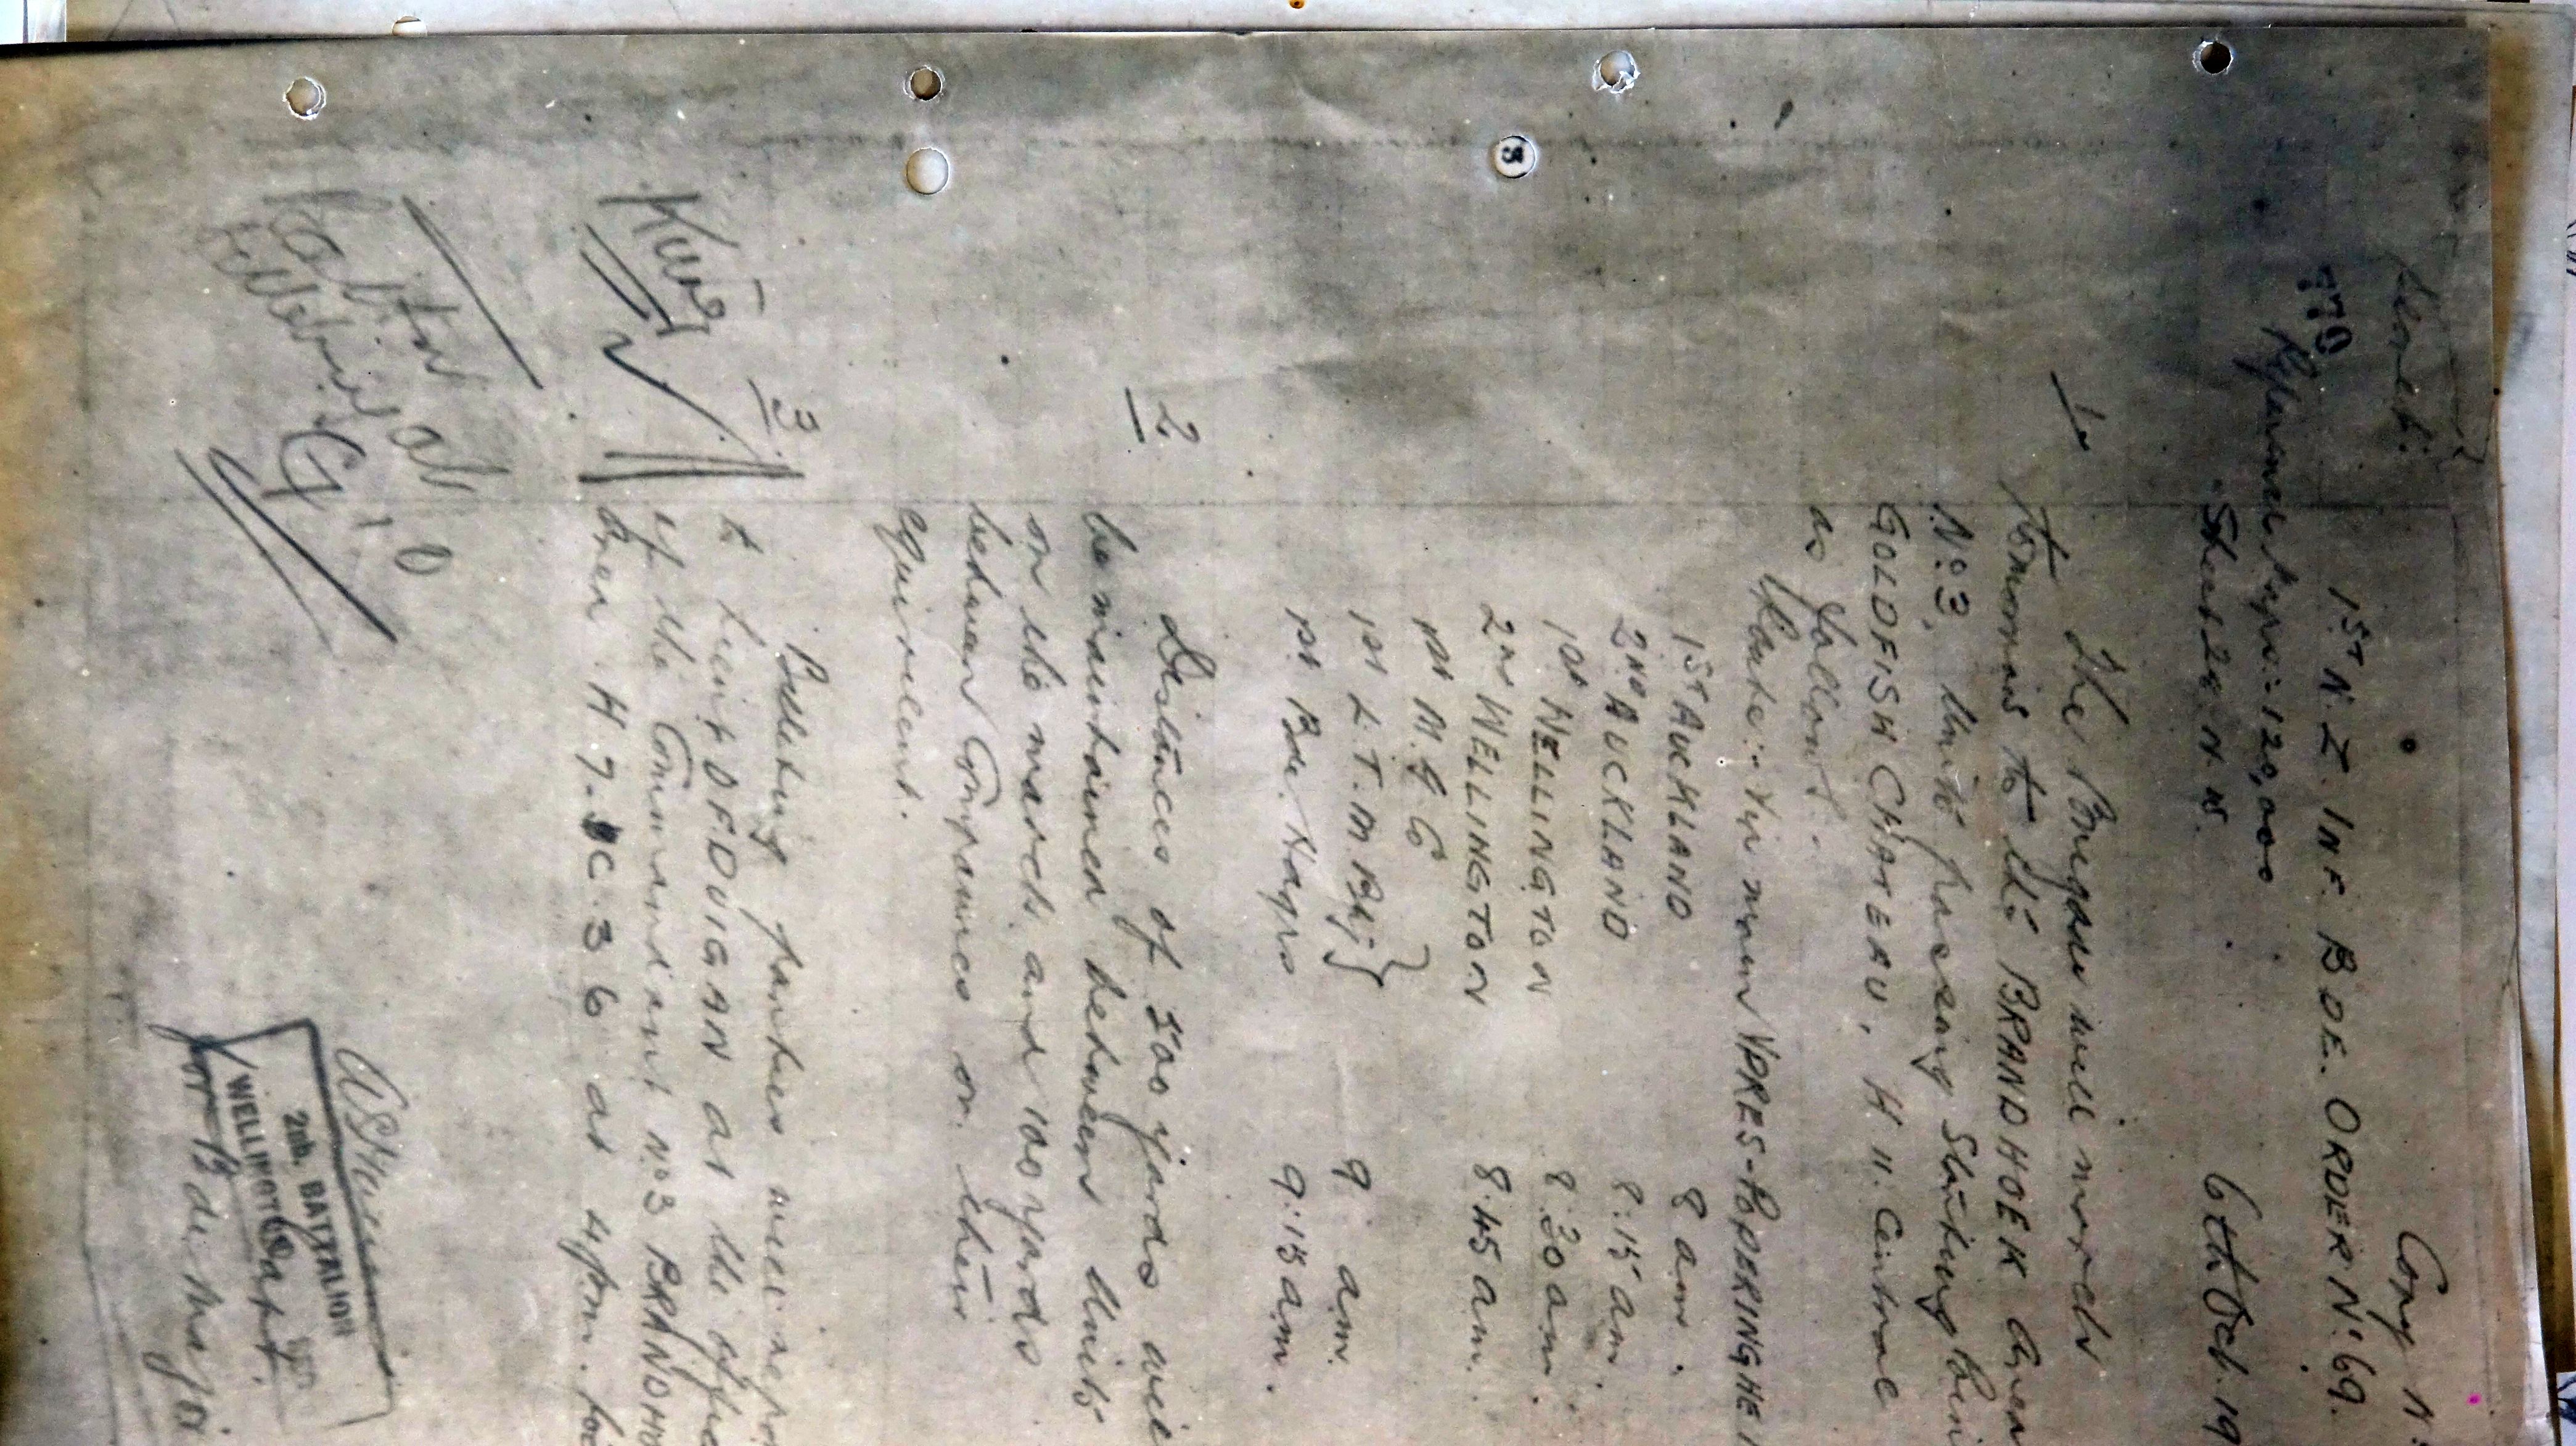 Secret.
Copy N.
1ST N.Z. INF. BDE. ORDER No. 69.
779
Reference Maps:- 1 20,000
Sheet 28. N.W.
6th Oct. 19
1.
The Brigade will march
tomorrow to the BRANDHOEK Area
No. 3, Units passing Starting Poin
GOLDFISH CHATEAU, H 11. Central
as follows:-
Route:- Via main YPRES-POPERINGHE
1ST AUCKLAND 8 am.
2ND AUCKLAND 8.15 am.
1st WELLINGTON 8.30 am.
2nd WELLINGTON 8.45 am.
1st M. G. C
1st L. T. M Bty } 9 am.
1st Bde. Hqrs 9.15 am.
2
Distances of 500 yards will
be maintained between Units
on the march and 100 yards
between Companies or their
equivalent.
3
Billeting parties will repo
to Lieut. DEDUIGAN at the office
of the Commandant No 3 BRANDHO
Area H 7. C. 3 6 at 4 pm. to
2nd. BATTALION
WELLINGTON
Capt.
for Bde. Major